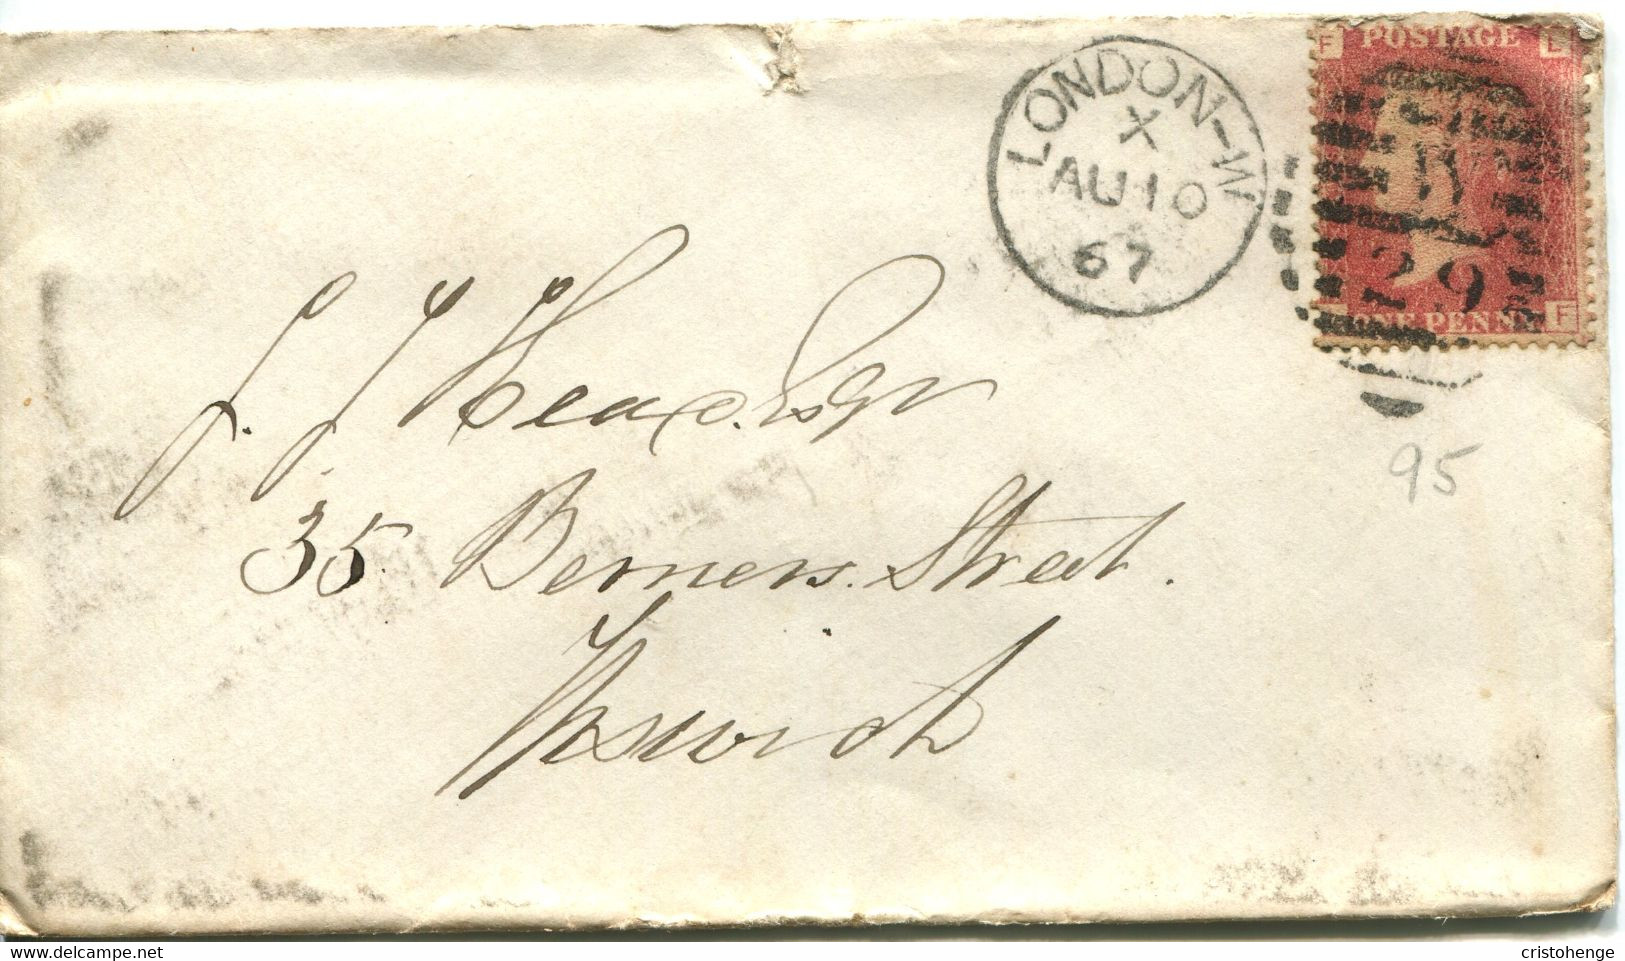 LONDON-W
X
AU 10
67
F POSTAGE L
W
29
ONE PENNY F
95
J. J. Head. Esqr
35 Berners. Street.
Ipswich
www.delcampe.net
cristohenge